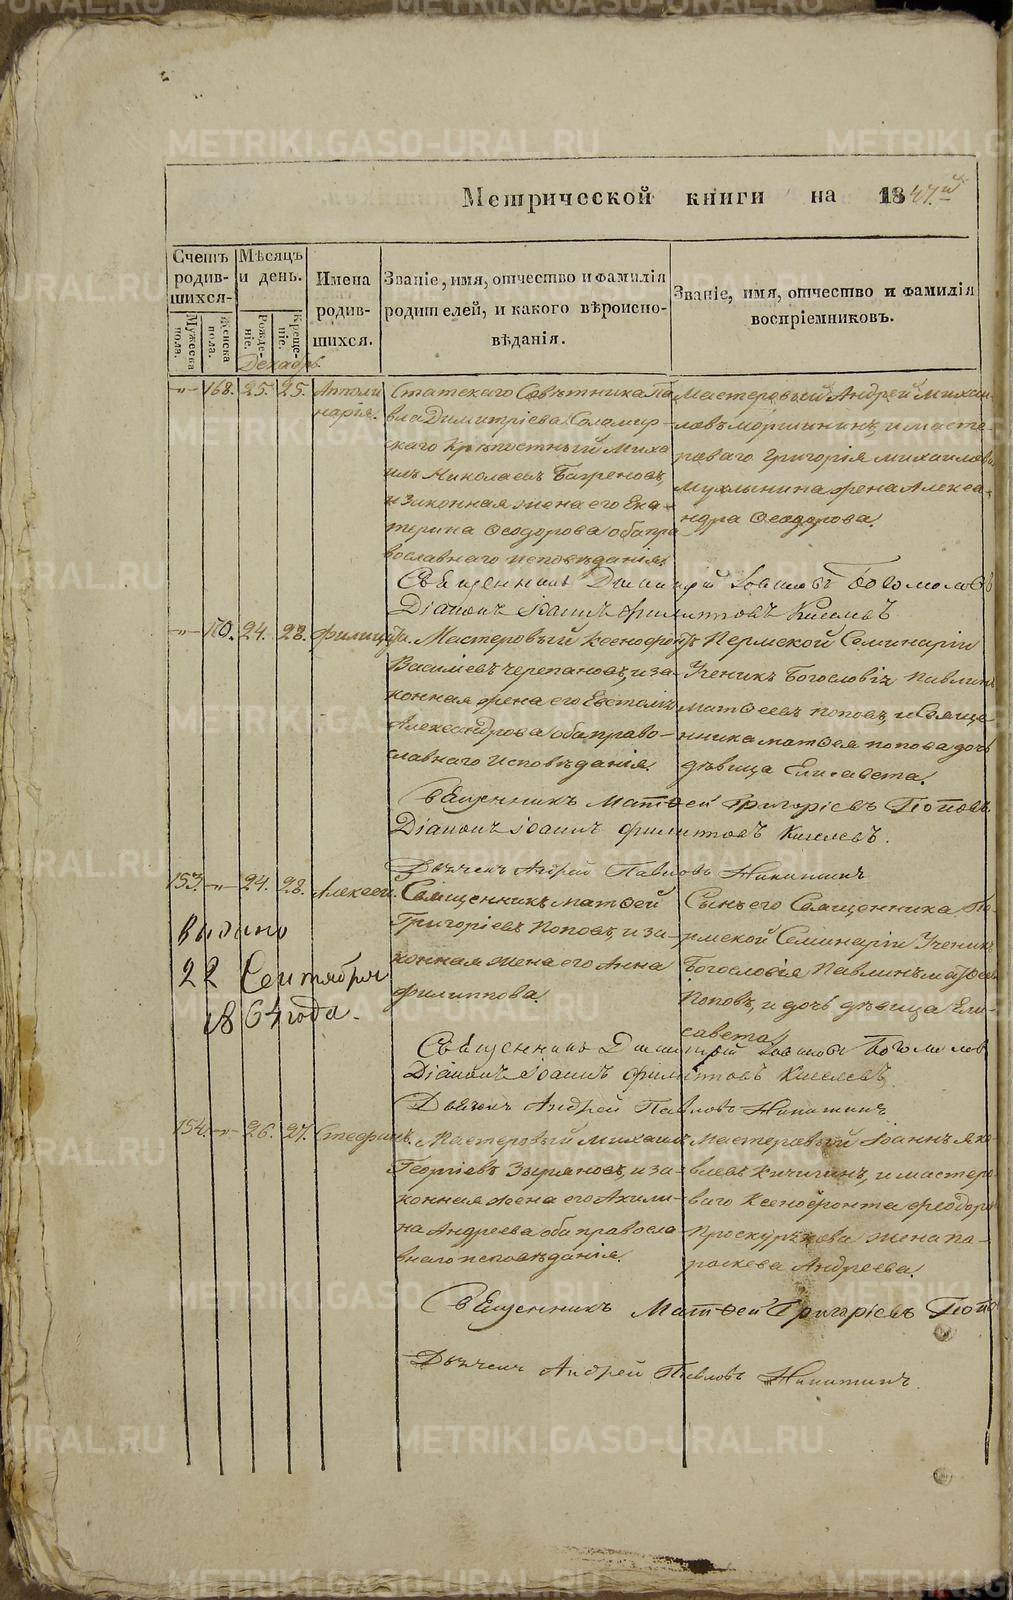 METRIKI.GASO-URAL.RU
Метрической книги на 1847.й
Счетъ родив-шихся.
Мужеска пола.
Женска пола.
Мѣсяцъ и день.
Рожде-ніе.
Креще-ніе.
Имена родив-шихся.
Званіе, имя, отчество и фамилія родителей, и какого вѣроиспо-вѣданія.
Званіе, имя, отчество и фамилія воспріемниковъ.
Декабрь
-"- 168. 25. 25. Аполи
нарія.
Статскаго Совѣтника Па
вла Димитріева Соломир-
скаго Крѣпостный Миха
илъ Николаевъ Багреновъ,
и законная жена его Ека-
терина Ѳеодорова оба пра
вославнаго исповѣданія.
Мастеровый Андрей Михаи
ловъ Моршининъ, и масте-
роваго Григорія Михаилова
Мухлынина жена Алекса-
ндра Ѳеодорова.
Священникъ Димитрій Іоанновъ Богомоловъ
Діаконъ Іоаннъ Филиповъ Киселевъ
-"- 170. 24. 28. Филицата.
Мастеровый Ксенофонтъ
Василіевъ Черепановъ, и за-
конная жена его Евстолія
Александрова оба право-
славнаго исповѣданія.
Пермской Семинаріи
Ученикъ Богословія Павлинъ
Матѳеевъ Поповъ, и Свяще-
нника Матѳея Попова дочь
дѣвица Елисавета.
Священникъ Матѳей Григоріевъ Поповъ.
Діаконъ Іоаннъ Филиповъ Киселевъ.
Дьячекъ Андрей Павловъ Никитинъ
153. -"- 24. 28. Алексей.
Священникъ Матѳей
Григоріевъ Поповъ, и за-
конная жена его Анна
Филиппова.
Сынъ его Священника Пе-
рмской Семинаріи Ученикъ
Богословія Павлинъ Матѳеевъ
Поповъ, и дочь дѣвица Ели-
савета.
Выдано
22 Сентября
1864 года.
Священникъ Димитрій Іоанновъ Богомоловъ
Діаконъ Іоаннъ Филиповъ Киселевъ
Дьячекъ Андрей Павловъ Никитинъ
154. -"- 26. 27. Стефанъ.
Мастеровый Михаилъ
Георгіевъ Зыряновъ, и за-
конная жена его Акили-
на Андреева оба правосла
внаго исповѣданія.
Мастеровый Іоаннъ Яко
влевъ Кичигинъ, и мастеро
ваго Ксенофонта Феодоро
Проскурякова жена Па-
раскева Андреева.
Священникъ Матѳей Григоріевъ Попо
Дьячекъ Андрей Павловъ Никитинъ.